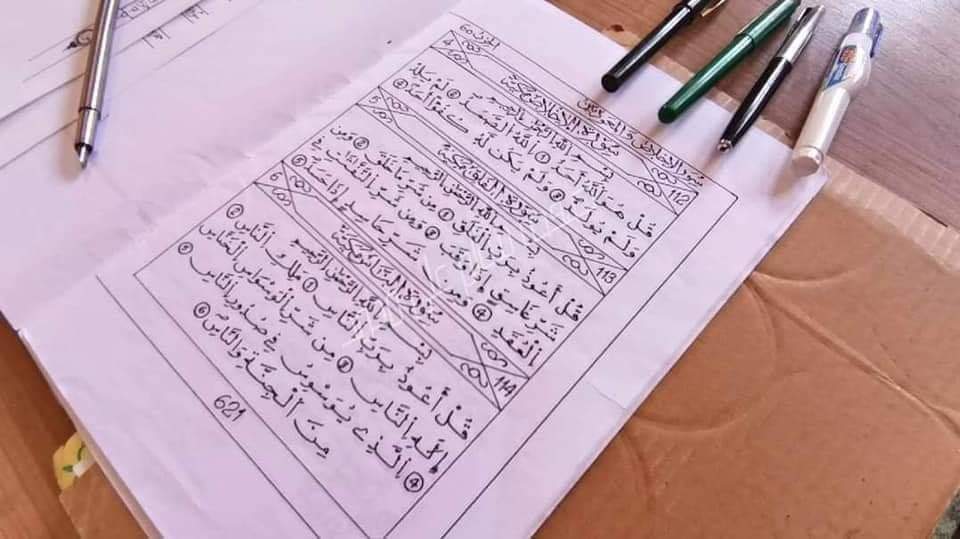 سورة الإخلاص والمعوذتين الحزب 60
112 سُورَةُ الإِخْلَاصِ مَكِّيَّة 4
بِسْمِ اللَّهِ الرَّحْمَنِ الرَّحِيمِ
قُلْ هُوَ اَللَّهُ أَحَدٌ ① اَللَّهُ الصَّمَدُ ② لَمْ يَلِدْ
وَلَمْ يُولَدْ ③ وَلَمْ يَكُن لَّهُ كُفُؤًا أَحَدٌ ④
113 سُورَةُ الْفَلَقِ مَكِّيَّة 5
بِسْمِ اللَّهِ الرَّحْمَنِ الرَّحِيمِ
قُلْ أَعُوذُ بِرَبِّ اِلْفَلَقِ ① مِن شَرِّ مَا خَلَقَ ② وَمِن
شَرِّ غَاسِقٍ إِذَا وَقَبَ ③ وَمِن شَرِّ اِلنَّفَّاثَاتِ فِي
اِلْعُقَدِ ④ وَمِن شَرِّ حَاسِدٍ إِذَا حَسَدَ ⑤
114 سُورَةُ النَّاسِ مَكِّيَّة 6
بِسْمِ اللَّهِ الرَّحْمَنِ الرَّحِيمِ
قُلْ أَعُوذُ بِرَبِّ اِلنَّاسِ ① مَلِكِ اِلنَّاسِ ②
إِلَهِ اِلنَّاسِ ③ مِن شَرِّ اِلْوَسْوَاسِ اِلْخَنَّاسِ
④ اِلَّذِي يُوَسْوِسُ فِي صُدُورِ اِلنَّاسِ ⑤
مِنَ اَلْجِنَّةِ وَالنَّاسِ ⑥
621